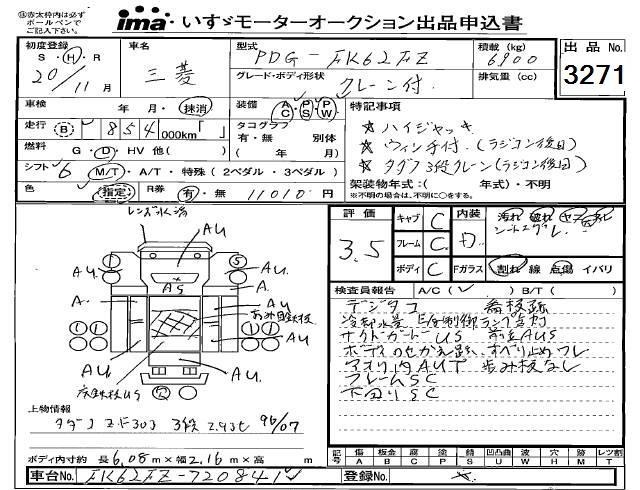 ※赤太枠内は必ず
ボールペンで
ご記入下さい。
ima いすゞモーターオークション出品申込書
初度登録
S・H・R
20/11月
車名
三菱
型式
PDG-FK62FZ
グレード・ボディ形状
クレーン付
積載(kg)
6900
排気量(cc)
出品No.
3271
車検 年 月・抹消
装備 AC・PS・PW
特記事項
走行 B 854,000km「 」
タコグラフ
有・無 別体
( 年 月)
★ハイジャッキ
★ウィンチ付(ラジコン後日)
★タダノ3段クレーン(ラジコン後日)
燃料 G・D・HV 他( )
シフト 6 M/T・A/T・特殊(2ペダル・3ペダル)
架装物年式:( 年式)・不明
※不明の場合は、不明に○をする。
色 指定 R券 有・無 11010円
評価
3.5
キャブ C
フレーム C
ボディ C
内装 D
汚れ 破れ
Fガラス 割れ 線 点傷 イバリ
AU
AU
AU
A
AS
A
AU
AU
AU
AU
検査員報告 A/C( ✓ ) B/T( )
デジタコ
サイドガードUS
アオリ内AUT 歩み板なし
フレームSC
下回りSC
上物情報
タダノ ZF303 3段 2.93t 96/07
ボディ内寸約 長6.08m×幅2.16m×高 m
記号 傷A 板金B 腐C 塗P 錆S 凹凸曲U 波W 穴H 跡M レツ割T
車台No. FK62FZ-720841
登録No.